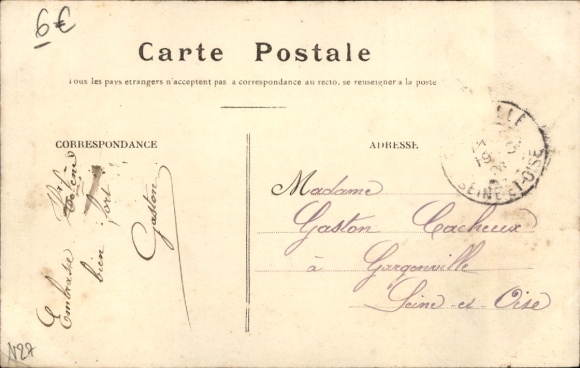 6€
Carte Postale
Tous les pays etrangers n'acceptent pas a correspondance au recto, se renseigner a la poste
CORRESPONDANCE
ADRESSE
Embrasse
bien fort
Gaston
Madame
Gaston Cacheux
à Gargenville
Seine-et-Oise
LLE
19
SEINE-ET-OISE
N27